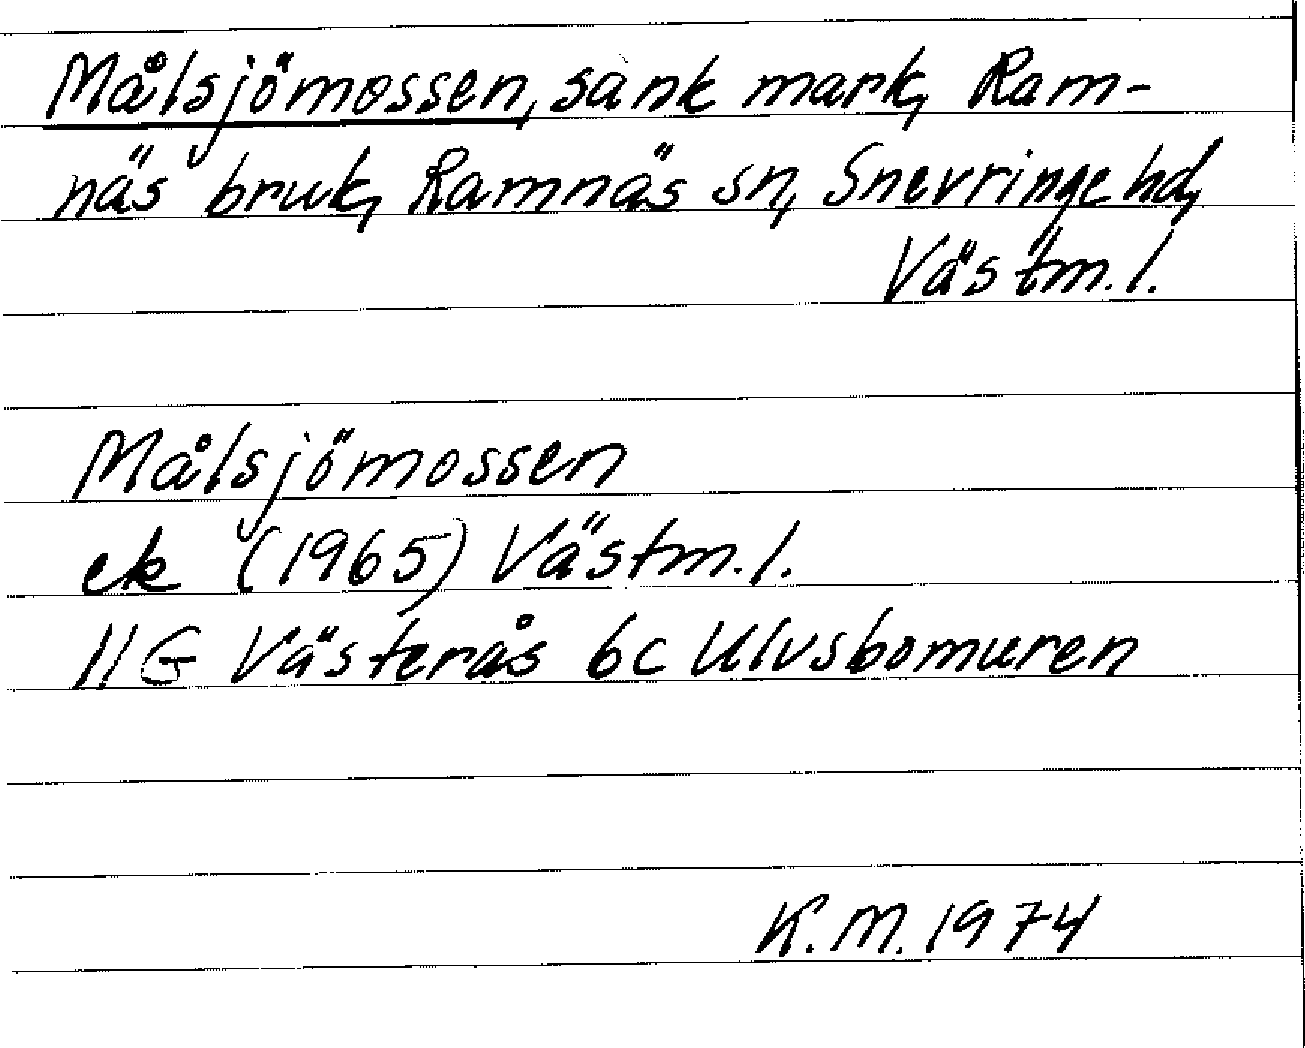 Målsjömossen, sank mark, Ram-
näs bruk, Ramnäs sn, Snevringe hd,
Västm. l.
Målsjömossen
ek (1965) Västm. l.
11G Västerås 6c Ulvsbomuren
K. M. 1974